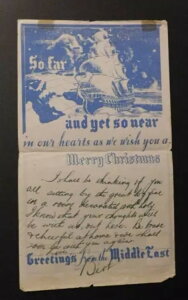 So far
and yet so near
in our hearts as we wish you a
Merry Christmas
I shall be thinking of you
all sitting by the great log fire
in a cosy decorated and holly
I know that your thoughts will
be with us out here. Be brave
& cheerful at home and shall
soon be with you again
Greetings from the Middle East
Bert